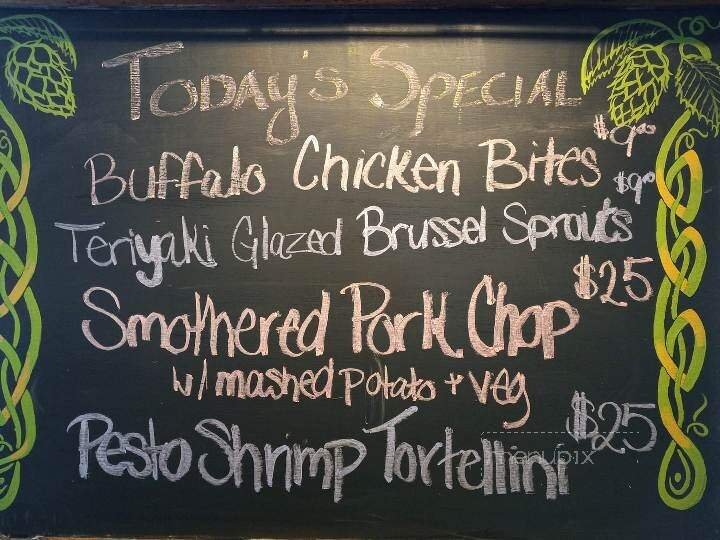 Today's Special
Buffalo Chicken Bites $9.00
Teriyaki Glazed Brussel Sprouts $9.00
Smothered Pork Chop $25
w/ mashed potato + veg
Pesto Shrimp Tortellini $25
menupix